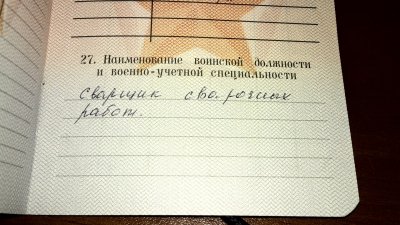 27. Наименование воинской должности
и военно-учетной специальности
Сварщик сварочных
работ.